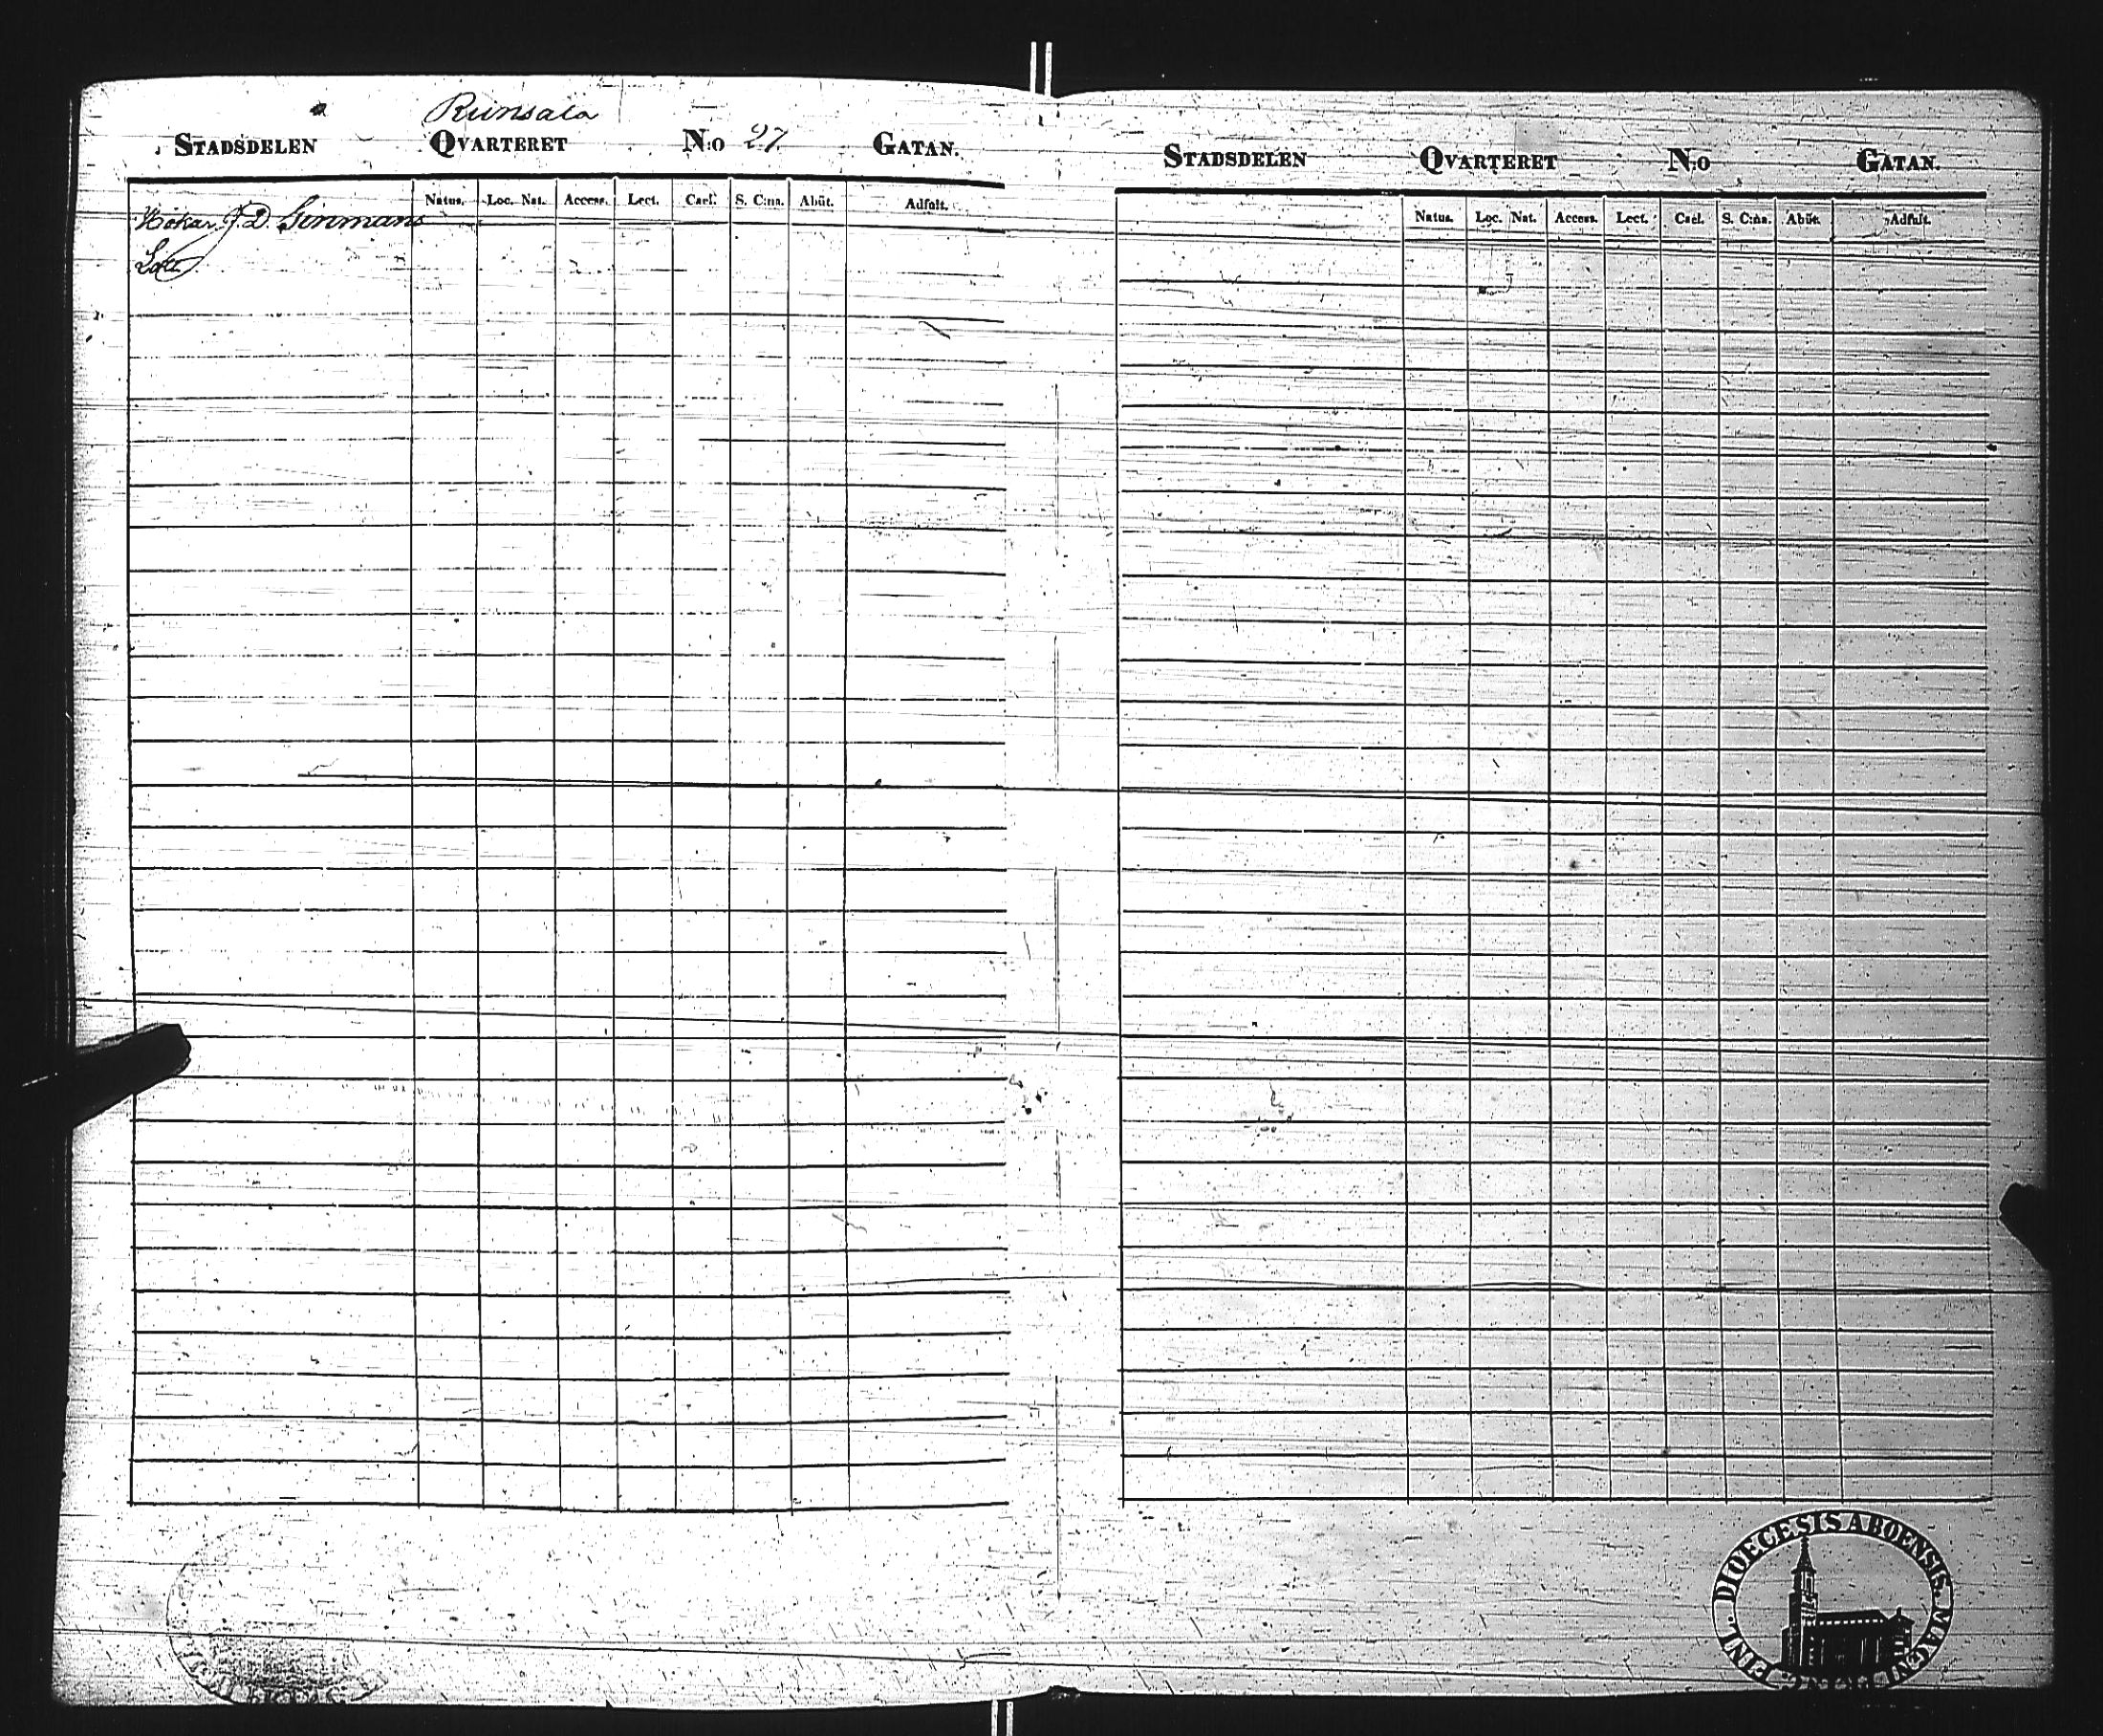 Runsala
STADSDELEN QVARTERET N:o 27 GATAN.
Natus. Loc. Nat. Access. Lect. Cael. S. C:na. Abiit. Adfuit.
Hökar. J. D. Ginmans
STADSDELEN QVARTERET N:o GATAN.
Natus. Loc. Nat. Access. Lect. Cael. S. C:na. Abiit. Adfuit.
FINL. DIOECESIS ABOENSIS